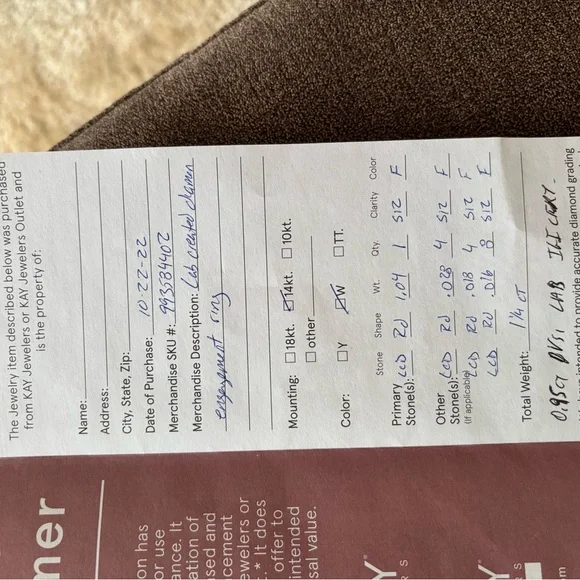 The Jewelry item described below was purchased
from KAY Jewelers or KAY Jewelers Outlet and
is the property of:
Name:
Address:
City, State, Zip:
Date of Purchase: 10-22-22
Merchandise SKU #: 993584402
Merchandise Description: Lab created
engagement ring
Mounting: 18kt. 14kt. 10kt.
other
Color: Y W TT.
Stone Shape Wt. Qty. Clarity Color
Primary
Stone(s): LCD Rd 1.04 1 SI2 F
Other
Stone(s): LCD Rd .028 4 SI2 F
(If applicable) LCD Rd .018 4 SI2 F
LCD Rd .016 8 SI2 F
Total Weight: 1 1/4 CT
LAB
intended to provide accurate diamond grading
mer
on has
or use
ance. It
ation of
sed and
cement
ewelers or
.* It does
offer to
intended
sal value.
Y
R S
Y
R S
m